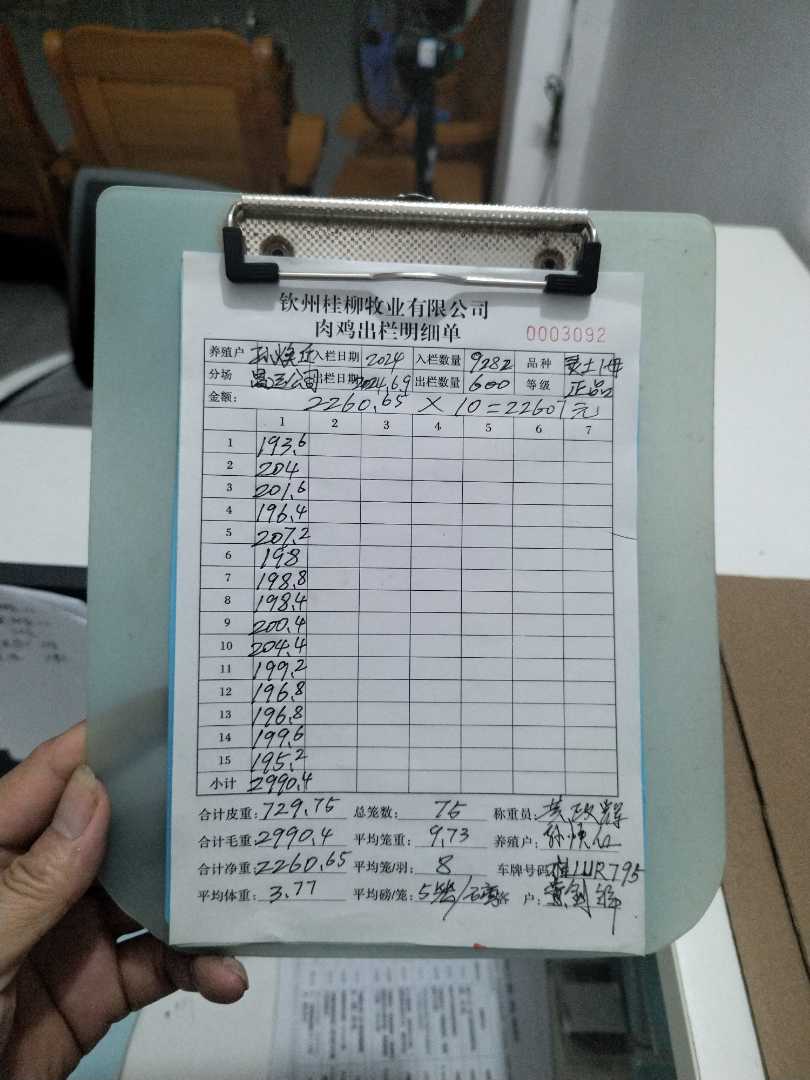 钦州桂柳牧业有限公司
肉鸡出栏明细单 0003092
养殖户 入栏日期 2024 入栏数量 9282 品种 土
分场 公司 出栏日期 2024.6.9 出栏数量 600 等级 正品
金额: 2260.65 × 10 = 22607元
1 2 3 4 5 6 7
1 193.6
2 204
3 201.6
4 196.4
5 207.2
6 198
7 198.8
8 198.4
9 200.4
10 204.4
11 199.2
12 196.8
13 196.8
14 199.6
15 195.2
小计 2990.4
合计皮重: 729.75 总笼数: 75 称重员: 黄
合计毛重: 2990.4 平均笼重: 9.73 养殖户:
合计净重: 2260.65 平均笼/羽: 8 车牌号码 795
平均体重: 3.77 平均磅/笼: 5 户: